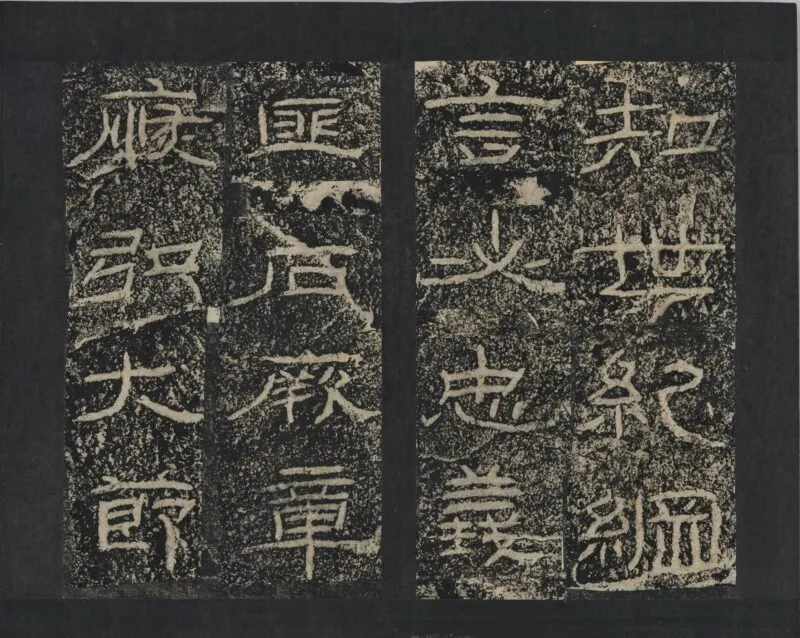 知世紀綱
言必忠義
匪石厥章
恢弘大節